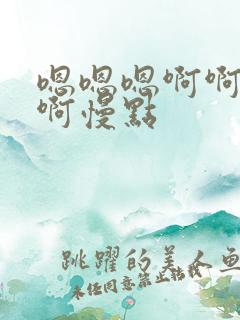 嗯嗯嗯啊啊
啊慢點
跳躍的美人魚
未经同意禁止转载